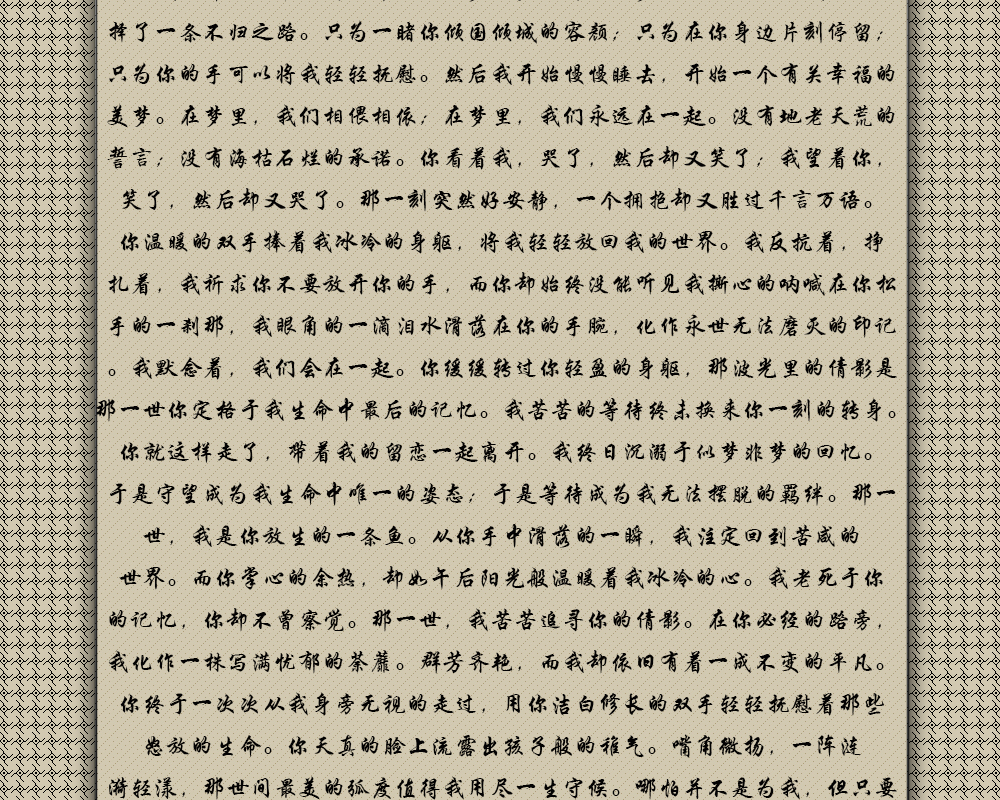 择了一条不归之路。只为一睹你倾国倾城的容颜；只为在你身边片刻停留；
只为你的手可以将我轻轻抚慰。然后我开始慢慢睡去，开始一个有关幸福的
美梦。在梦里，我们相偎相依；在梦里，我们永远在一起。没有地老天荒的
誓言；没有海枯石烂的承诺。你看着我，哭了，然后却又笑了；我望着你，
笑了，然后却又哭了。那一刻突然好安静，一个拥抱却又胜过千言万语。
你温暖的双手捧着我冰冷的身躯，将我轻轻放回我的世界。我反抗着，挣
扎着，我祈求你不要放开你的手，而你却始终没能听见我撕心的呐喊在你松
手的一刹那，我眼角的一滴泪水滑落在你的手腕，化作永世无法磨灭的印记
。我默念着，我们会在一起。你缓缓转过你轻盈的身躯，那波光里的倩影是
那一世你定格于我生命中最后的记忆。我苦苦的等待终未换来你一刻的转身。
你就这样走了，带着我的留恋一起离开。我终日沉溺于似梦非梦的回忆。
于是守望成为我生命中唯一的姿态；于是等待成为我无法摆脱的羁绊。那一
世，我是你放生的一条鱼。从你手中滑落的一瞬，我注定回到苦咸的
世界。而你掌心的余热，却如午后阳光般温暖着我冰冷的心。我老死于你
的记忆，你却不曾察觉。那一世，我苦苦追寻你的倩影。在你必经的路旁，
我化作一株写满忧郁的荼蘼。群芳齐艳，而我却依旧有着一成不变的平凡。
你终于一次次从我身旁无视的走过，用你洁白修长的双手轻轻抚慰着那些
怒放的生命。你天真的脸上流露出孩子般的稚气。嘴角微扬，一阵涟
漪轻漾，那世间最美的弧度值得我用尽一生守候。哪怕并不是为我，但只要